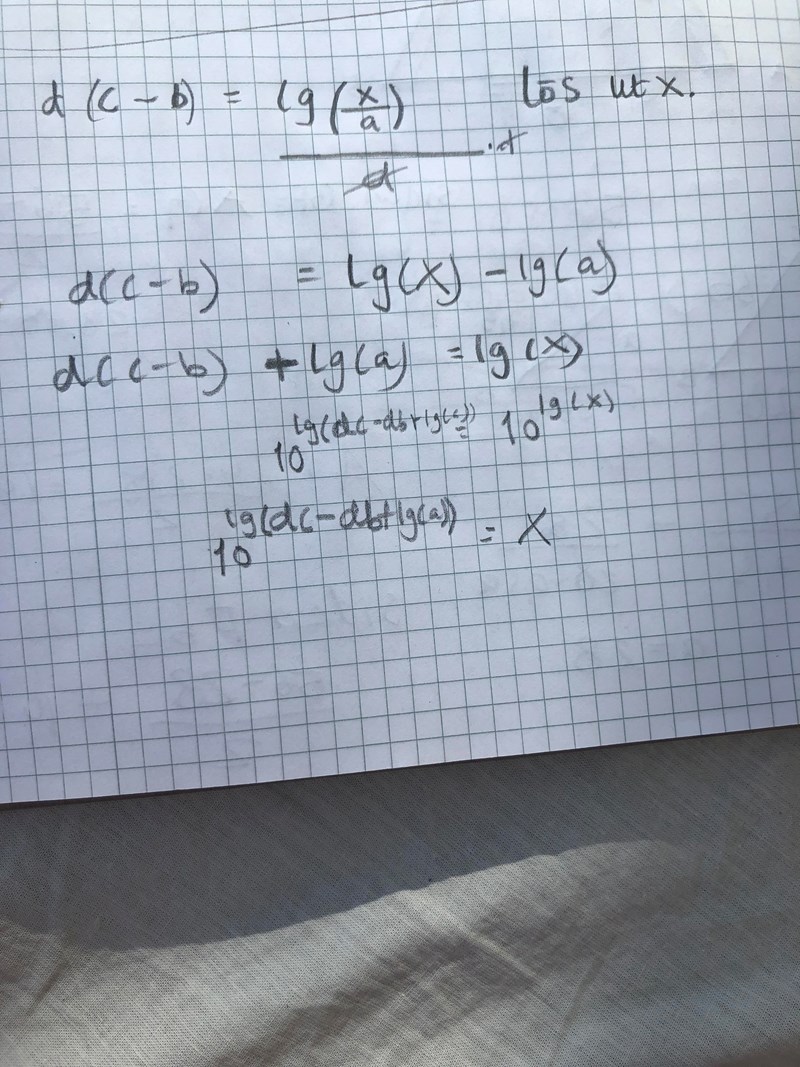 d (c - b) = lg(x/a) / d · d Lös ut x.
d(c-b) = lg(x) - lg(a)
d(c-b) + lg(a) = lg(x)
10^lg(dc-db+lg(a)) = 10^lg(x)
10^lg(dc-db+lg(a)) = x